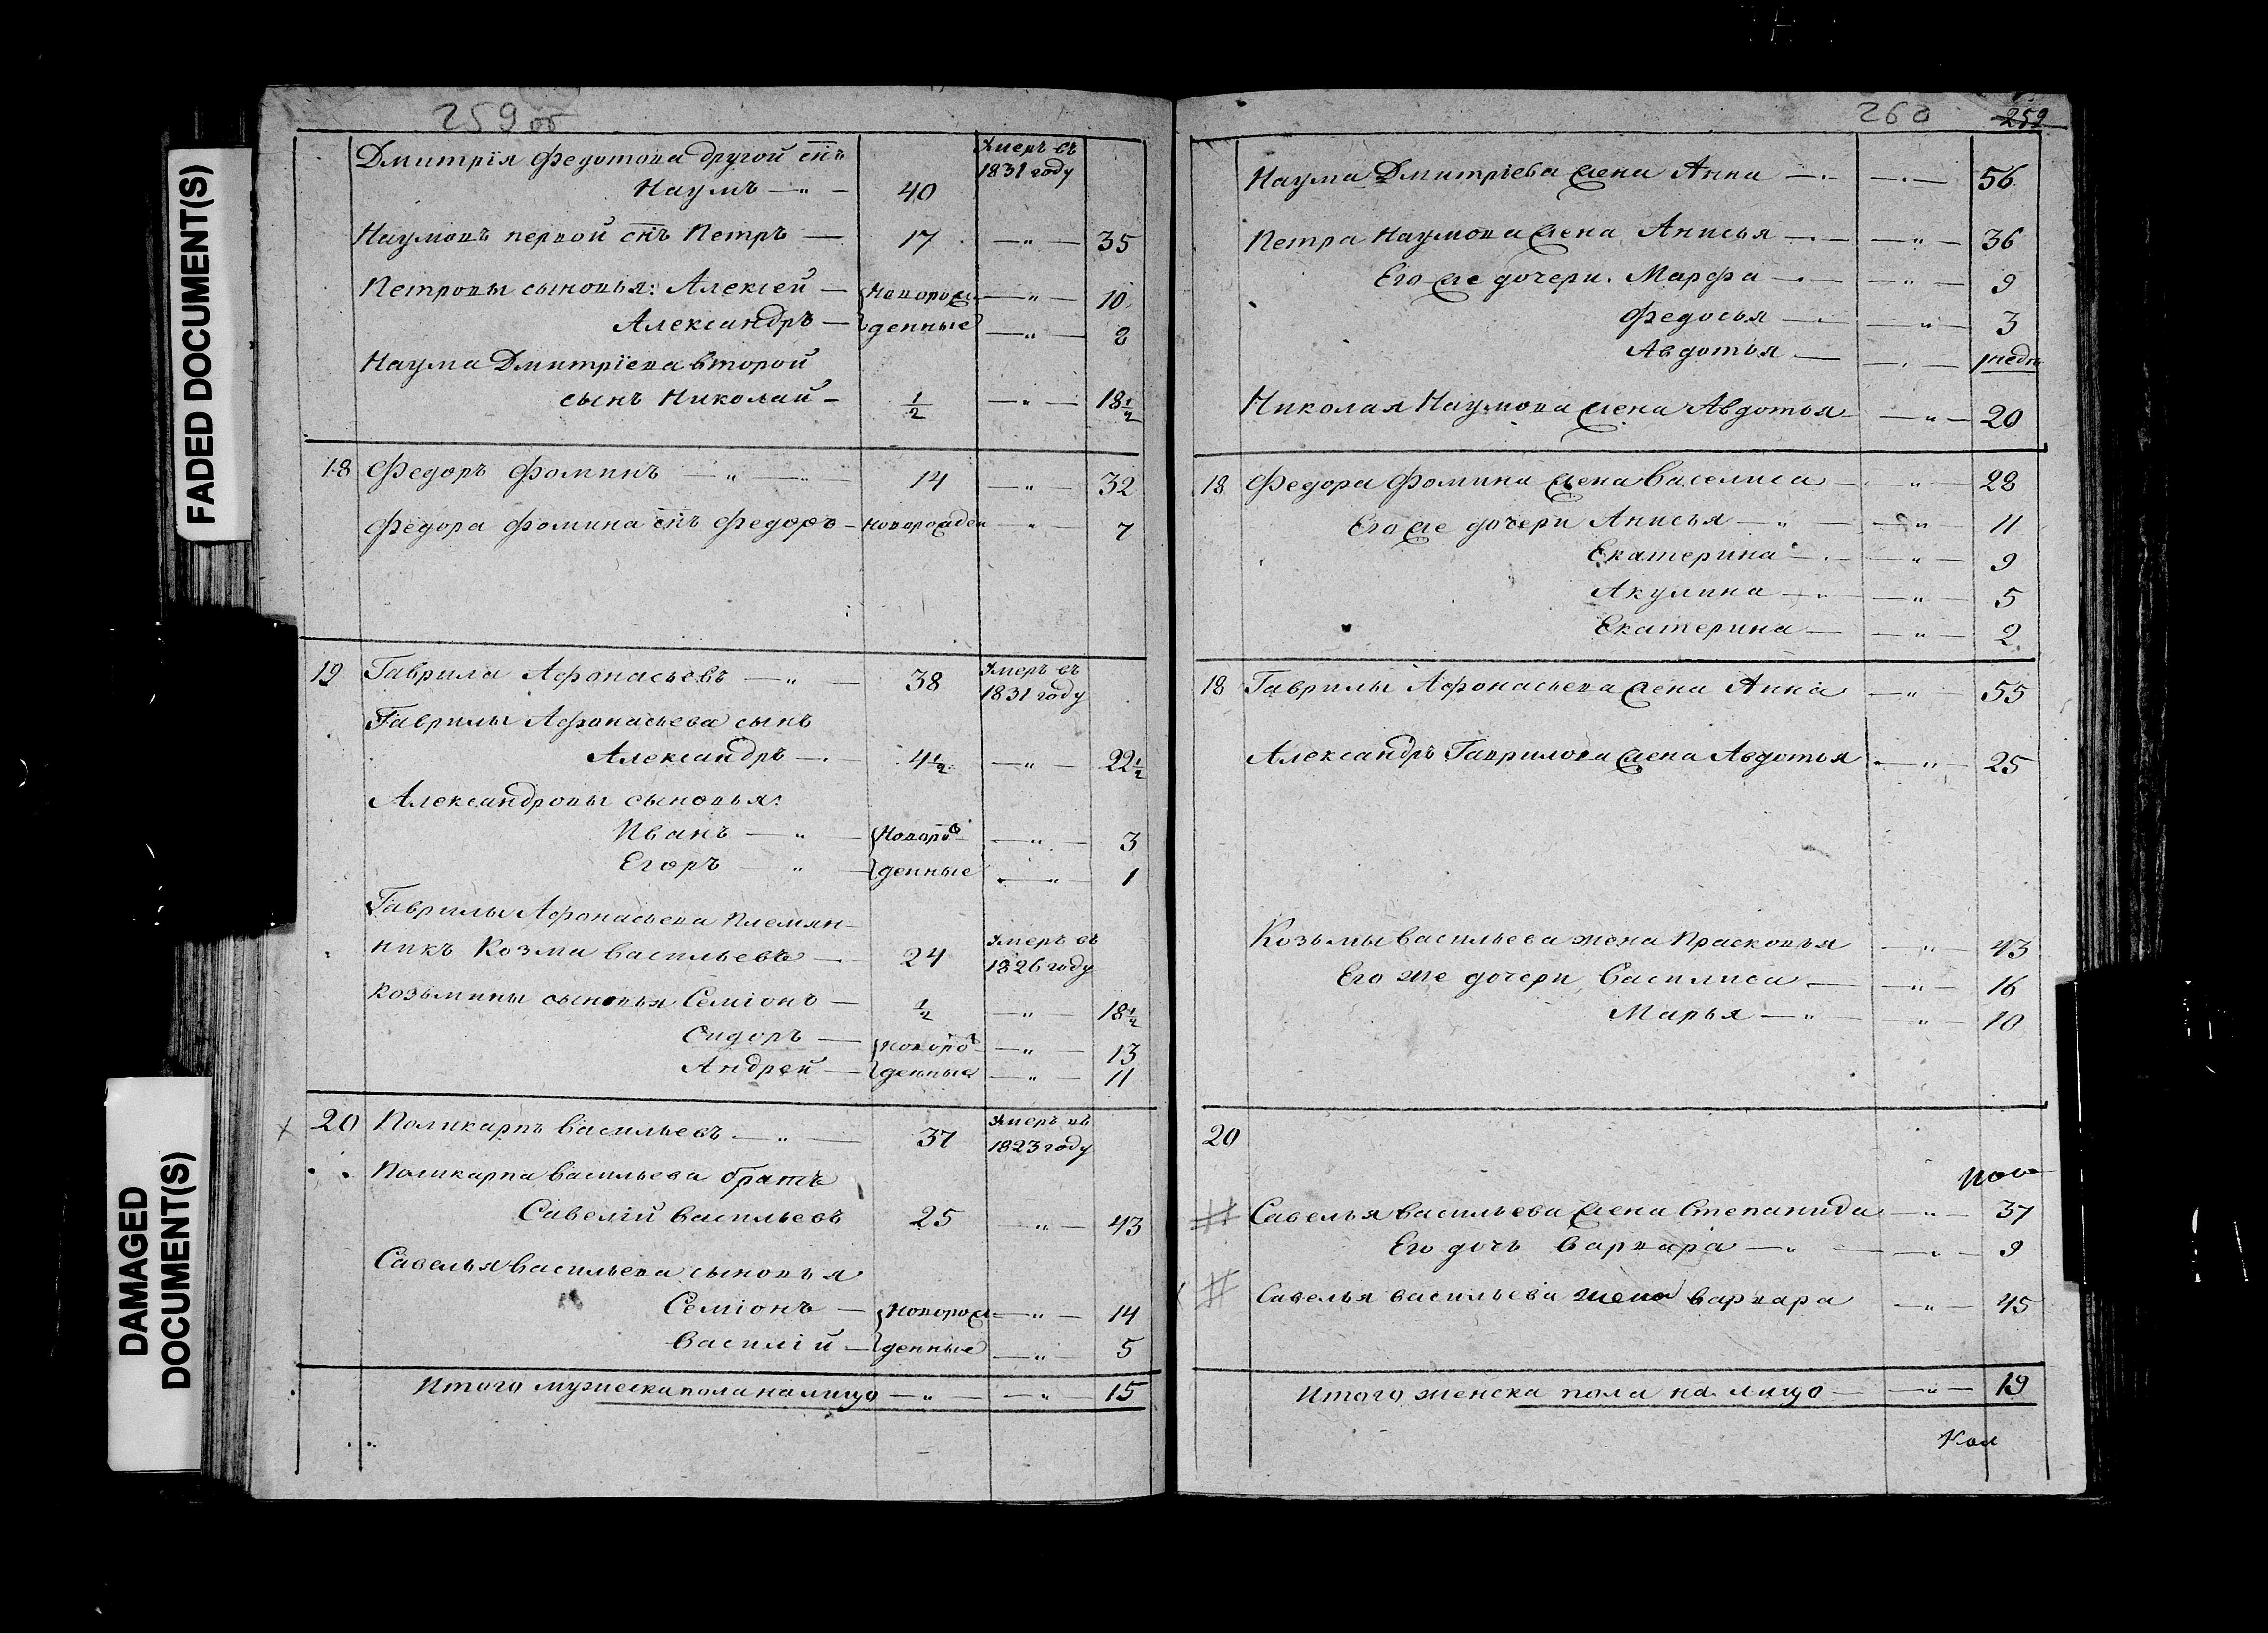 FADED DOCUMENT(S)
DAMAGED
DOCUMENT(S)
259 об
Дмитрія Федотова другой сн̅ъ
Умеръ въ
1831 году
Наумъ — „ — 40
Наумовъ первой сн̅ъ Петръ — 17 — „ — 35
Петровы сыновья: Алексей — новорож — „ — 10
Александръ — денные — „ — 8
Наума Дмитріева второй
сынъ Николай — 1/2 — „ — 18 1/2
18 Федоръ Фоминъ — „ — 14 — „ — 32
Федора Фомина сн̅ъ Федоръ — новорожден — „ — 7
19 Гаврила Афонасьевъ — „ — 38 Умеръ въ
1831 году
Гаврилы Афонасьева сынъ
Александръ — 4 1/2 — „ — 22 1/2
Александровы сыновья:
Иванъ — „ — Новоро — „ — 3
Егоръ — „ — денные — „ — 1
Гаврилы Афонасьева племян-
никъ Козма Васильевъ — 24 Умеръ въ
1826 году
Козьмины сыновья Семіонъ — 1/2 — „ — 18 1/2
Сидоръ — новоро — „ — 13
Андрей — денные — „ — 11
20 Поликарпъ Васильевъ — „ — 37 Умеръ въ
1823 году
Поликарпа Васильева братъ
Савелій Васильевъ 25 — „ — 43
Савелья Васильева сыновья
Семіонъ — новорож — „ — 14
Василій — денные — „ — 5
Итого мужеска пола на лицо — „ — — „ 15
260 259
Наума Дмитріева жена Анна — — „ — 56
Петра Наумова жена Анисья — — „ — 36
Его же дочери. Марфа — — „ — 9
Федосья — — „ — 3
Авдотья — — „ — 1 неде
Николая Наумова жена Авдотья — „ — 20
18 Федора Фомина жена Василиса — „ — 28
Его же дочери Анисья — „ — — „ — 11
Екатерина — — „ — 9
Акулина — — „ — 5
Екатерина — — „ — 2
18 Гаврилы Афонасьева жена Анна — „ — 55
Александръ Гаврилова жена Авдотья — „ — 25
Козьмы Васильева жена Прасковья — „ — 43
Его же дочери Василиса — — „ — 16
Марья — „ — — „ — 10
20
Савелья Васильева жена Степанида — „ — 37
Его дочь Варвара — „ — — „ — 9
Савелья Васильева жена Варвара — „ — 45
Итого женска пола на лицо — — „ — 19